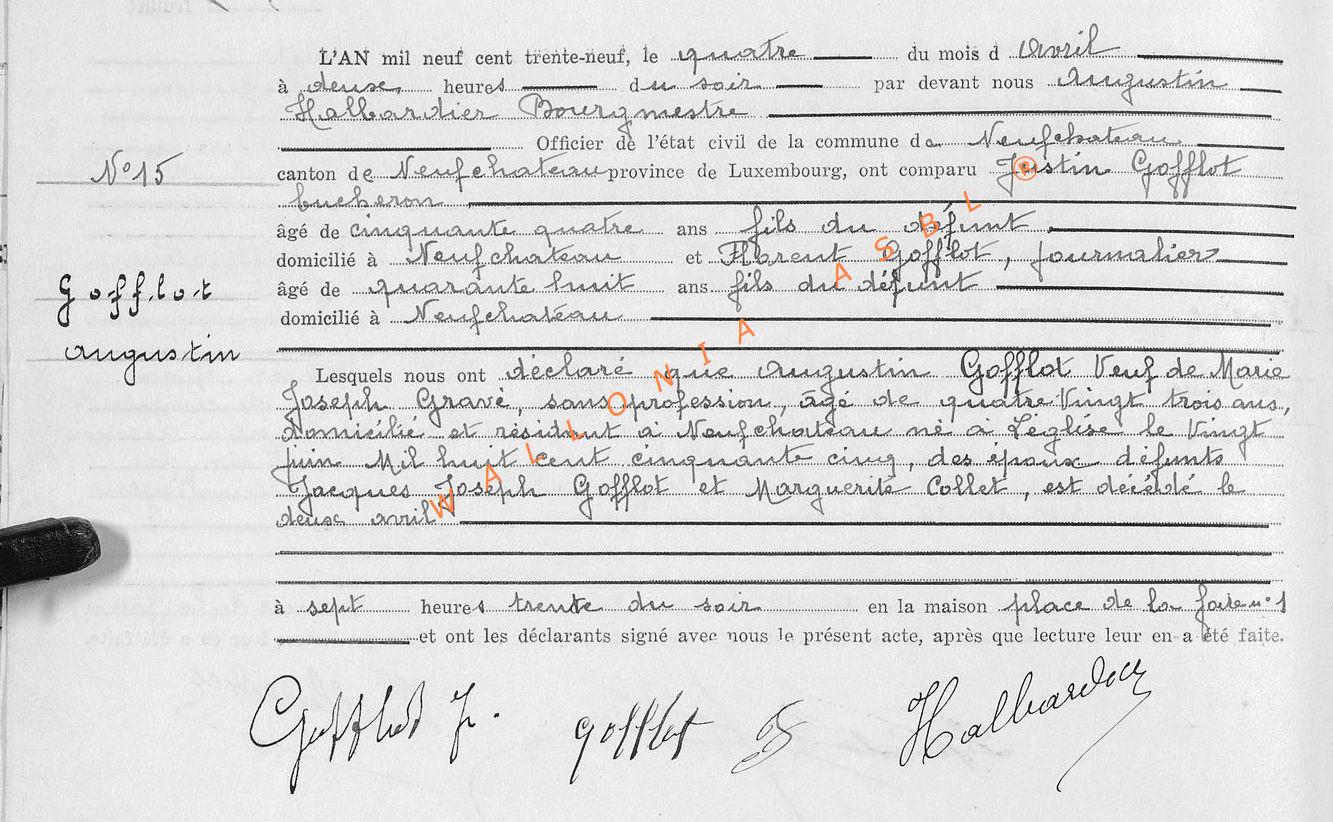 L'AN mil neuf cent trente-neuf, le quatre du mois d Avril
à deux heures du soir par devant nous Augustin
Halbardier Bourgmestre
Officier de l'état civil de la commune de Neufchateau
N° 15
canton de Neufchateau province de Luxembourg, ont comparu Justin Gofflot
bucheron
âgé de cinquante quatre ans fils du défunt,
domicilié à Neufchateau et Florent Gofflot, journalier
Gofflot
âgé de quarante huit ans fils du défunt
domicilié à Neufchateau
Augustin
Lesquels nous ont déclaré que Augustin Gofflot Veuf de Marie
Joseph Gravé, sans profession, âgé de quatre Vingt trois ans,
domicilié et résidant à Neufchateau né à Léglise le Vingt
juin Mil huit cent cinquante cinq, des époux défunts
Jacques Joseph Gofflot et Marguerite Collet, est décédé le
deux avril
à sept heures trente du soir en la maison place de la foire n° 1
et ont les déclarants signé avec nous le présent acte, après que lecture leur en a été faite.
Gofflot J. Gofflot Halbardier
WALLONIA ASBL ®